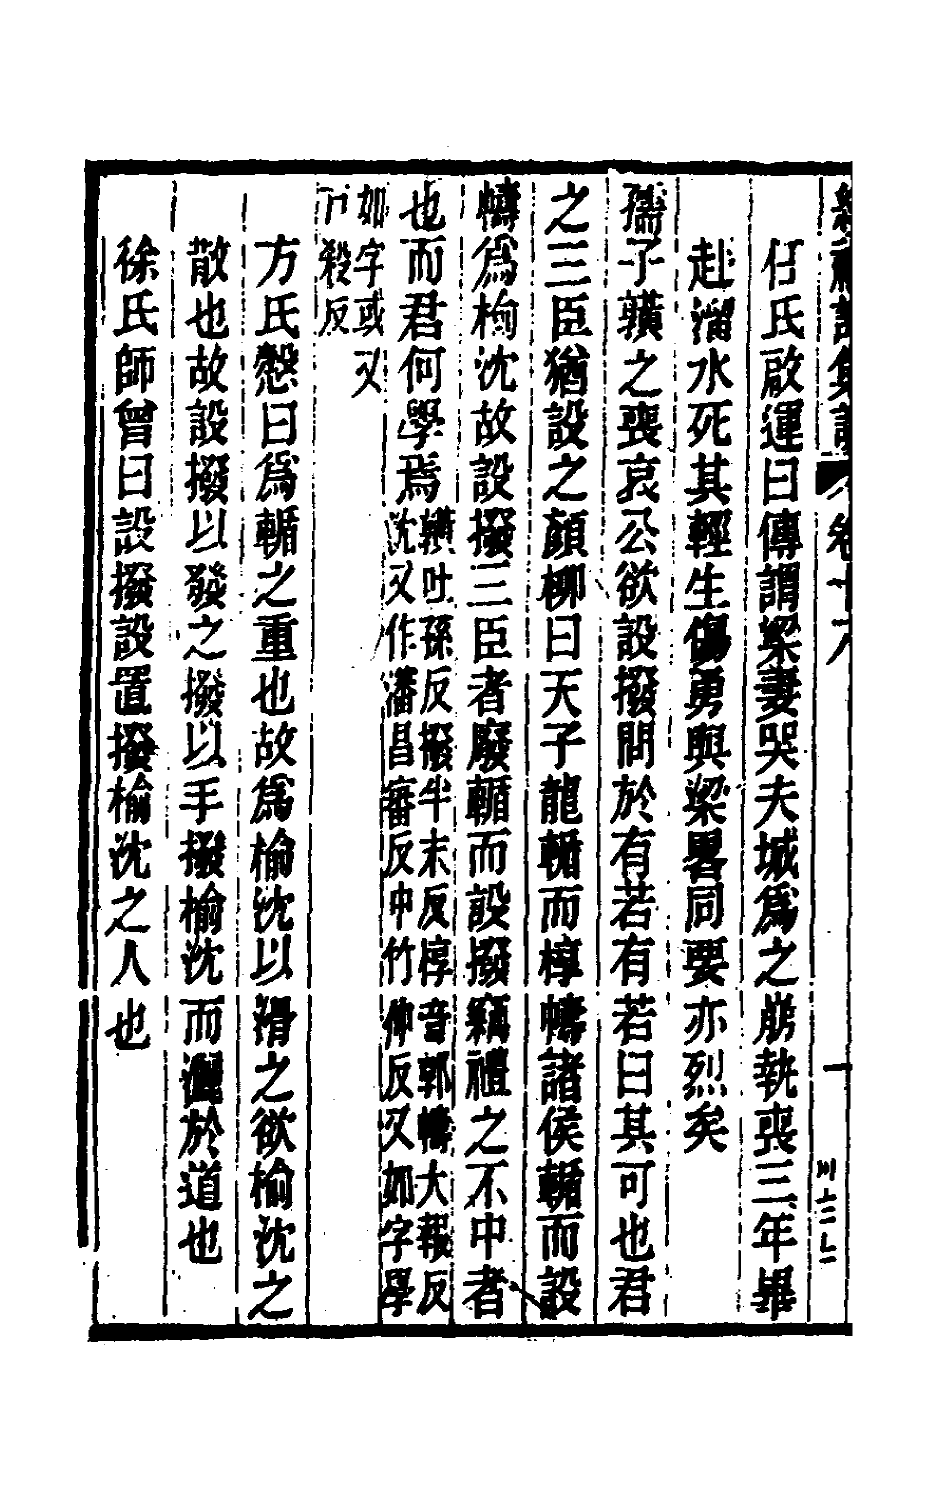 任氏啟運曰傳謂梁妻哭夫城為之崩執喪三年畢
赴淄水死其輕生傷勇與梁畧同要亦烈矣
孺子䵍之喪哀公欲設撥問於有若有若曰其可也君
之三臣猶設之顏柳曰天子龍輴而椁幬諸侯輴而設
幬為榆沈故設撥三臣者廢輴而設撥竊禮之不中者
也而君何學焉
䵍吐孫反撥半末反椁音郭幬大報反
沈又作瀋昌審反中竹仲反又如字學
如字或又
戶敎反
方氏慤曰為輴之重也故為榆沈以滑之欲榆沈之
散也故設撥以發之撥以手撥榆沈而灑於道也
徐氏師曾曰設撥設置撥榆沈之人也
卷十六
一